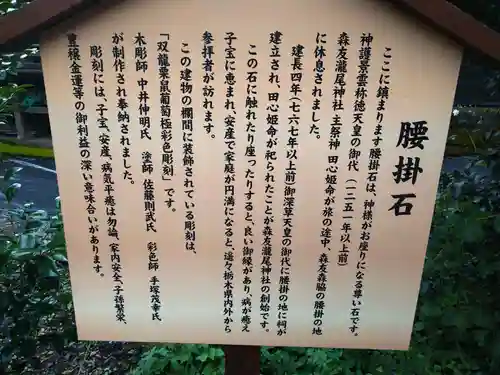 腰掛石
ここに鎮まります腰掛石は、神様がお座りになる尊い石です。
神護景雲称徳天皇の御代（一二五一年以上前）
森友瀧尾神社 主祭神 田心姫命が旅の途中、森友森脇の腰掛の地
に休息されました。
建長四年（七六七年以上前）御深草天皇の御代に腰掛の地に祠が
建立され、田心姫命が祀られたことが森友瀧尾神社の創始です。
この石に触れたり座ったりすると、良い御縁があり、病が癒え
子宝に恵まれ、安産で家庭が円満になると、遥々栃木県内外から
参拝者が訪れます。
この建物の欄間に装飾されている彫刻は、
「双龍栗鼠葡萄極彩色彫刻」です。
木彫師 中井伸明氏、塗師 佐藤則武氏、彩色師 手塚茂幸氏
が制作され奉納されました。
彫刻には、子宝、安産、病気平癒は勿論、家内安全、子孫繁栄、
豊穣金運等の御利益の深い意味合いがあります。